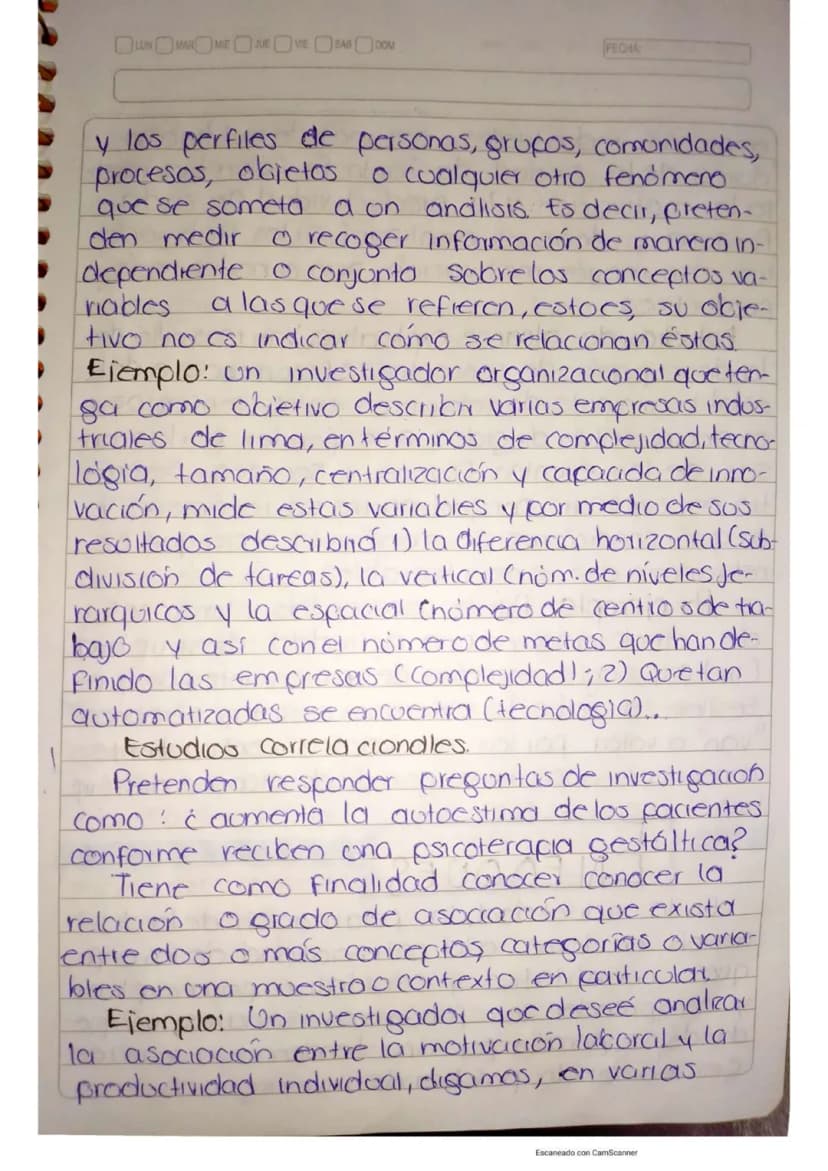 LUN MAR MIE JUE VIE SAB DOM FECHA:
y los perfiles de personas, grupos, comunidades,
procesos, objetos o cualquier otro fenómeno
que se someta a un análisis. Es decir, preten-
den medir o recoger información de manera in-
dependiente o conjunta sobre los conceptos va-
riables a las que se refieren, esto es, su obje-
tivo no es indicar cómo se relacionan éstas
Ejemplo: un investigador organizacional que ten-
ga como objetivo describir varias empresas indus-
triales de lima, en términos de complejidad, tecno-
lógia, tamaño, centralización y capacida de inno-
vación, mide estas variables y por medio de sus
resultados describirá 1) la diferencia horizontal (sub-
división de tareas), la vertical (núm. de níveles je-
rarquicos y la espacial (número de centros de tra-
bajo y así con el número de metas que han de-
finido las empresas (complejidad); 2) Que tan
automatizadas se encuentra (tecnologia)..
Estudios correlacionales.
Pretenden responder preguntas de investigación
como: ¿ aumenta la autoestima de los pacientes
conforme reciben una psicoterapia gestáltica?
Tiene como finalidad conocer conocer la
relación o grado de asociación que exista
entre dos o más conceptos, categorías o varia-
bles en una muestra o contexto en particular.
Ejemplo: Un investigador que deseé analizar
la asociación entre la motivación laboral y la
productividad individual, digamos, en varias
Escaneado con CamScanner